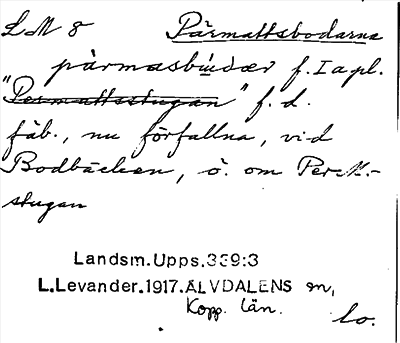 LM 8 Pärmattsbodarna
pàrmasbùdær f. I a pl.
"Permattsstugan" f. d.
fäb., nu förfallna, vid
Bodbäcken, ö. om Per M.-
stugan
Landsm. Upps. 339:3
L. Levander. 1917. ÄLVDALENS sn,
Kopp. län.
Lo.